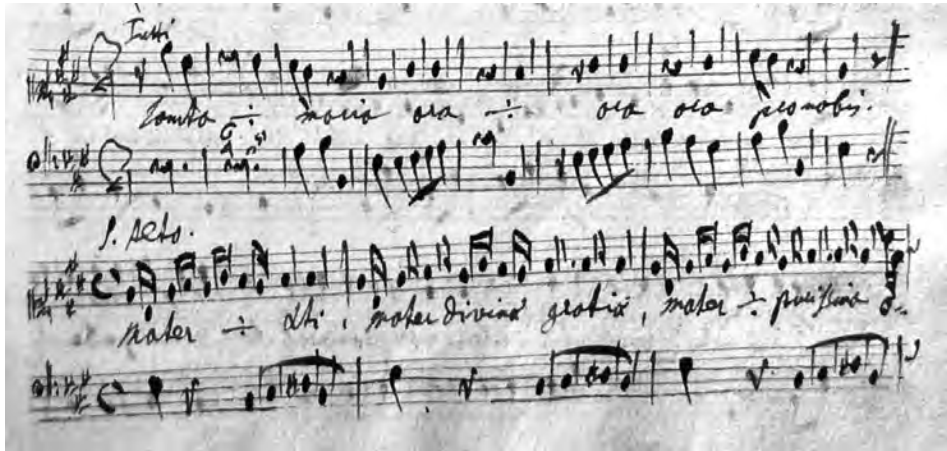 Tutti
Santa ÷ maria ora ÷ ora ora pronobis.
S. Alto.
mater ÷ , mater divina gratia, mater ÷ purissima